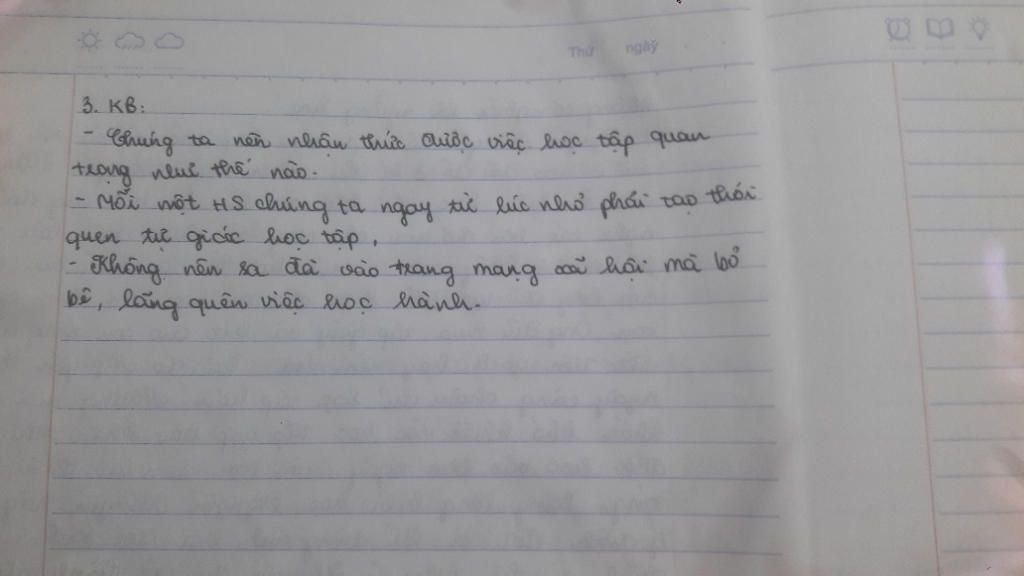 Thứ ngày
3. KB:
- Chúng ta nên nhận thức được việc học tập quan
trọng như thế nào.
- Mỗi một HS chúng ta ngay từ lúc nhỏ phải tạo thói
quen tự giác học tập,
- Không nên sa đà vào trang mạng xã hội mà bỏ
bê, lãng quên việc học hành.